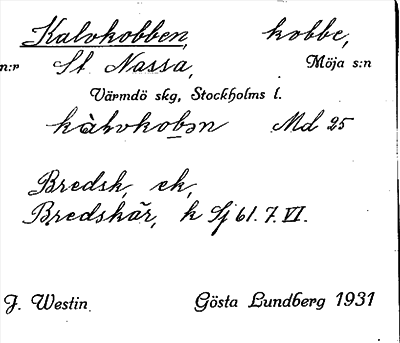 Kalvkobben, kobbe,
n:r St. Nassa, Möja s:n
Värmdö skg, Stockholms l.
kàlvkobən Md 25
Bredsk, ek,
Bredskär, k Sj 61. 7. VI.
J. Westin Gösta Lundberg 1931